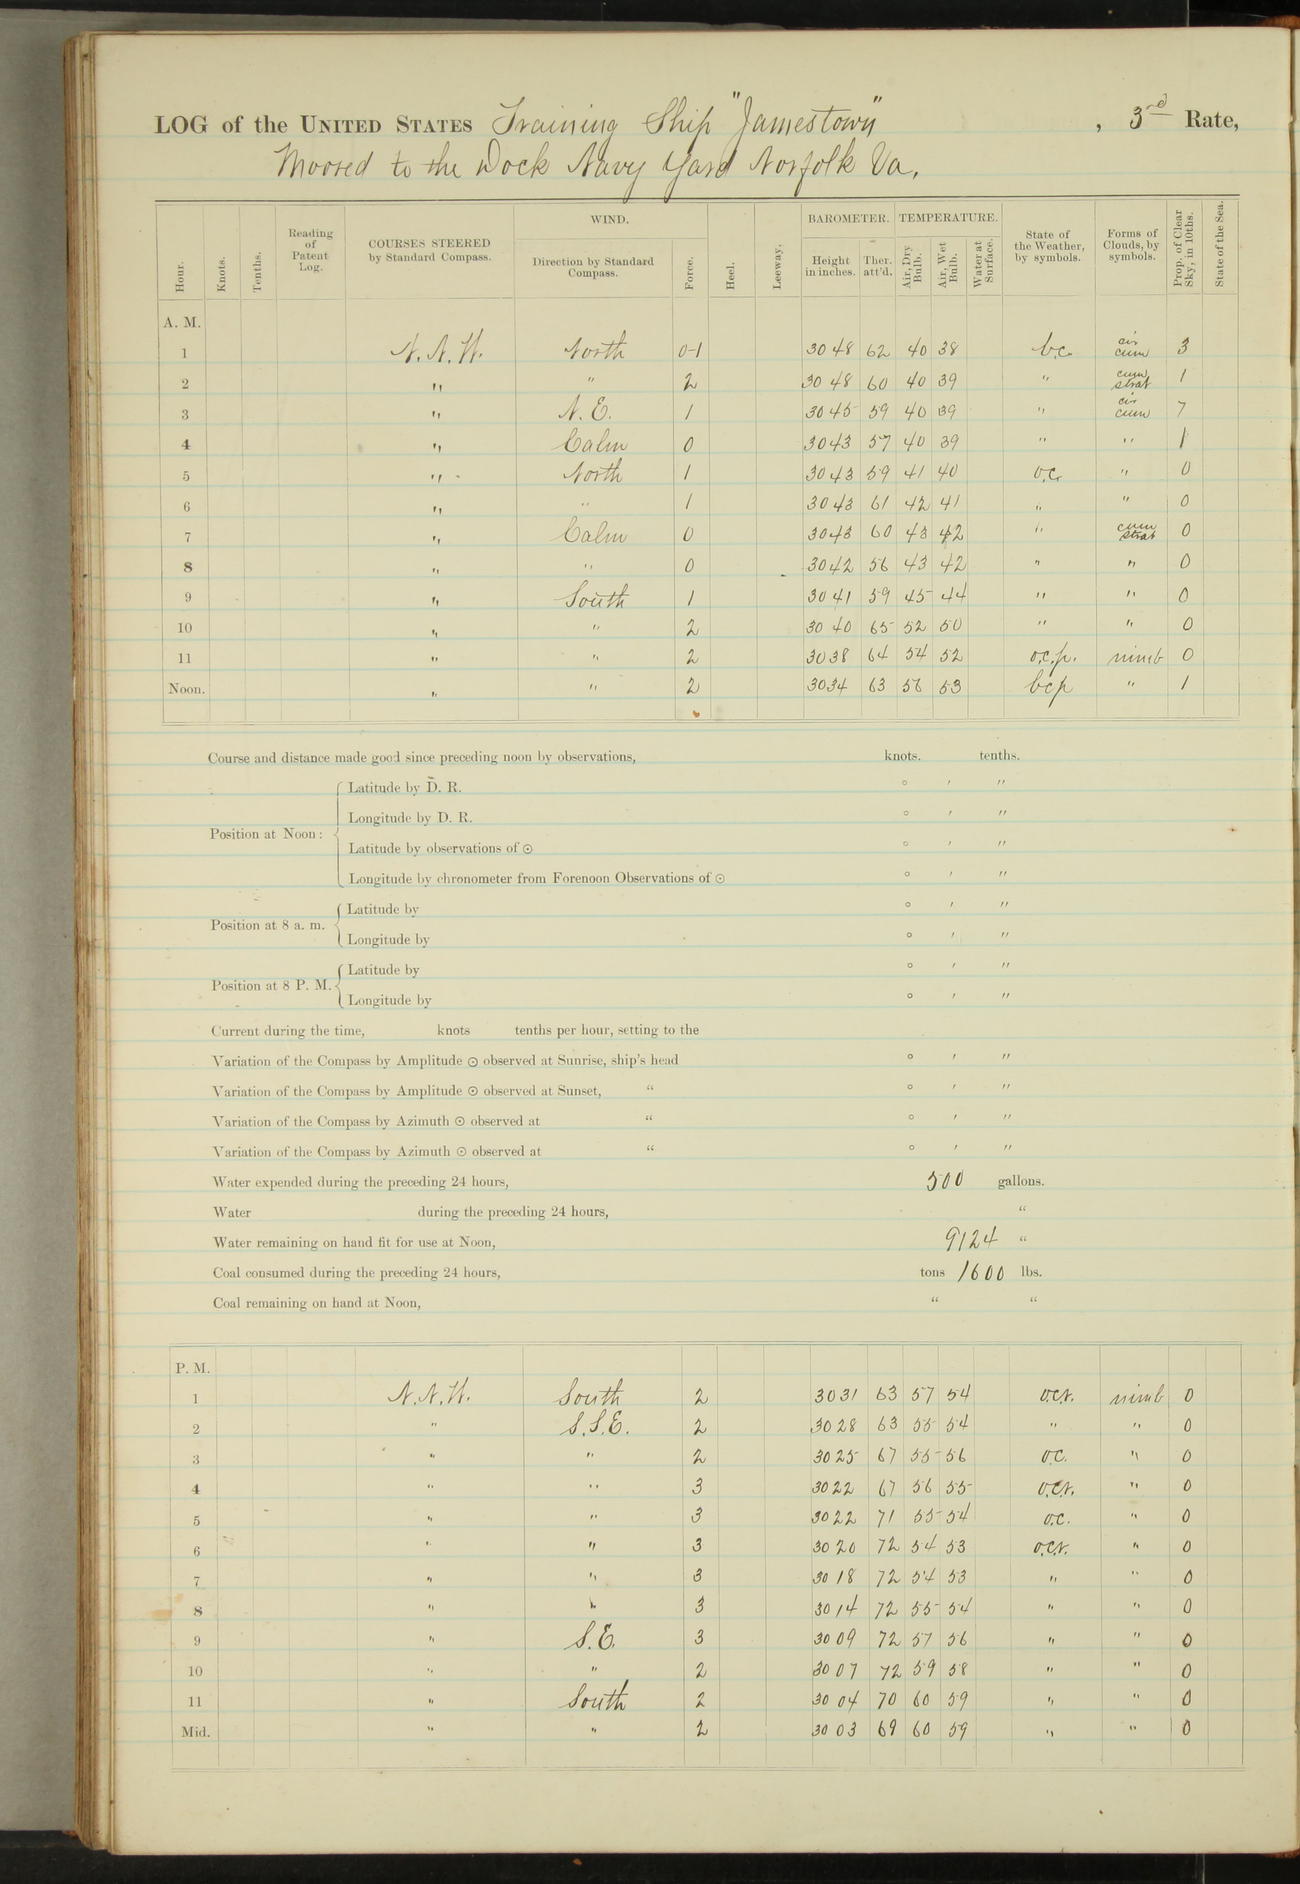 LOG of the UNITED STATES Training Ship "Jamestown", 3rd Rate,
Moored to the Dock Navy Yard Norfolk Va.
Hour. Knots. Tenths. Reading of Patent Log. COURSES STEERED by Standard Compass. WIND. Direction by Standard Compass. Force. Heel. Leeway. BAROMETER. Height in inches. Ther. att'd. TEMPERATURE. Air, Dry Bulb. Air, Wet Bulb. Water at Surface. State of the Weather, by symbols. Forms of Clouds, by symbols. Prop. of Clear Sky, in 10ths. State of the Sea.
A. M.
1 N.N.W. North 0-1 30 48 62 40 38 b.c. cir cum 3
2 " " 2 30 48 60 40 39 " cum strat 1
3 " N.E. 1 30 45 59 40 39 " cir cum 7
4 " Calm 0 30 43 57 40 39 " " 1
5 " North 1 30 43 59 41 40 o.c. " 0
6 " " 1 30 43 61 42 41 " " 0
7 " Calm 0 30 43 60 43 42 " cum strat 0
8 " " 0 30 42 56 43 42 " " 0
9 " South 1 30 41 59 45 44 " " 0
10 " " 2 30 40 65 52 50 " " 0
11 " " 2 30 38 64 54 52 o.c.p. nimb 0
Noon. " " 2 30 34 63 56 53 bcp " 1
Course and distance made good since preceding noon by observations, knots. tenths.
Position at Noon: Latitude by D. R. ° ′ ″
Longitude by D. R. ° ′ ″
Latitude by observations of ☉ ° ′ ″
Longitude by chronometer from Forenoon Observations of ☉ ° ′ ″
Position at 8 a. m. Latitude by ° ′ ″
Longitude by ° ′ ″
Position at 8 P. M. Latitude by ° ′ ″
Longitude by ° ′ ″
Current during the time, knots tenths per hour, setting to the
Variation of the Compass by Amplitude ☉ observed at Sunrise, ship's head ° ′ ″
Variation of the Compass by Amplitude ☉ observed at Sunset, " ° ′ ″
Variation of the Compass by Azimuth ☉ observed at " ° ′ ″
Variation of the Compass by Azimuth ☉ observed at " ° ′ ″
Water expended during the preceding 24 hours, 500 gallons.
Water during the preceding 24 hours, "
Water remaining on hand fit for use at Noon, 9124 "
Coal consumed during the preceding 24 hours, tons 1600 lbs.
Coal remaining on hand at Noon, " "
P. M.
1 N.N.W. South 2 30 31 63 57 54 o.c.r. nimb 0
2 " S.S.E. 2 30 28 63 55 54 " " 0
3 " " 2 30 25 67 55 56 o.c. " 0
4 " " 3 30 22 67 56 55 o.c.r. " 0
5 " " 3 30 22 71 55 54 o.c. " 0
6 " " 3 30 20 72 54 53 o.c.r. " 0
7 " " 3 30 18 72 54 53 " " 0
8 " " 3 30 14 72 55 54 " " 0
9 " S.E. 3 30 09 72 57 56 " " 0
10 " " 2 30 07 72 59 58 " " 0
11 " South 2 30 04 70 60 59 " " 0
Mid. " " 2 30 03 69 60 59 " " 0